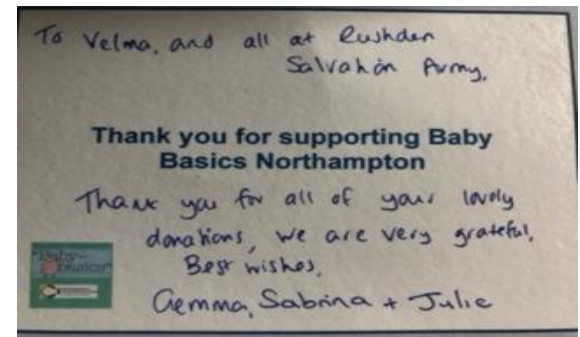 To Velma, and all at Rushden
Salvation Army,
Thank you for supporting Baby
Basics Northampton
Thank you for all of your lovely
donations, we are very grateful.
Best wishes,
Gemma, Sabrina + Julie